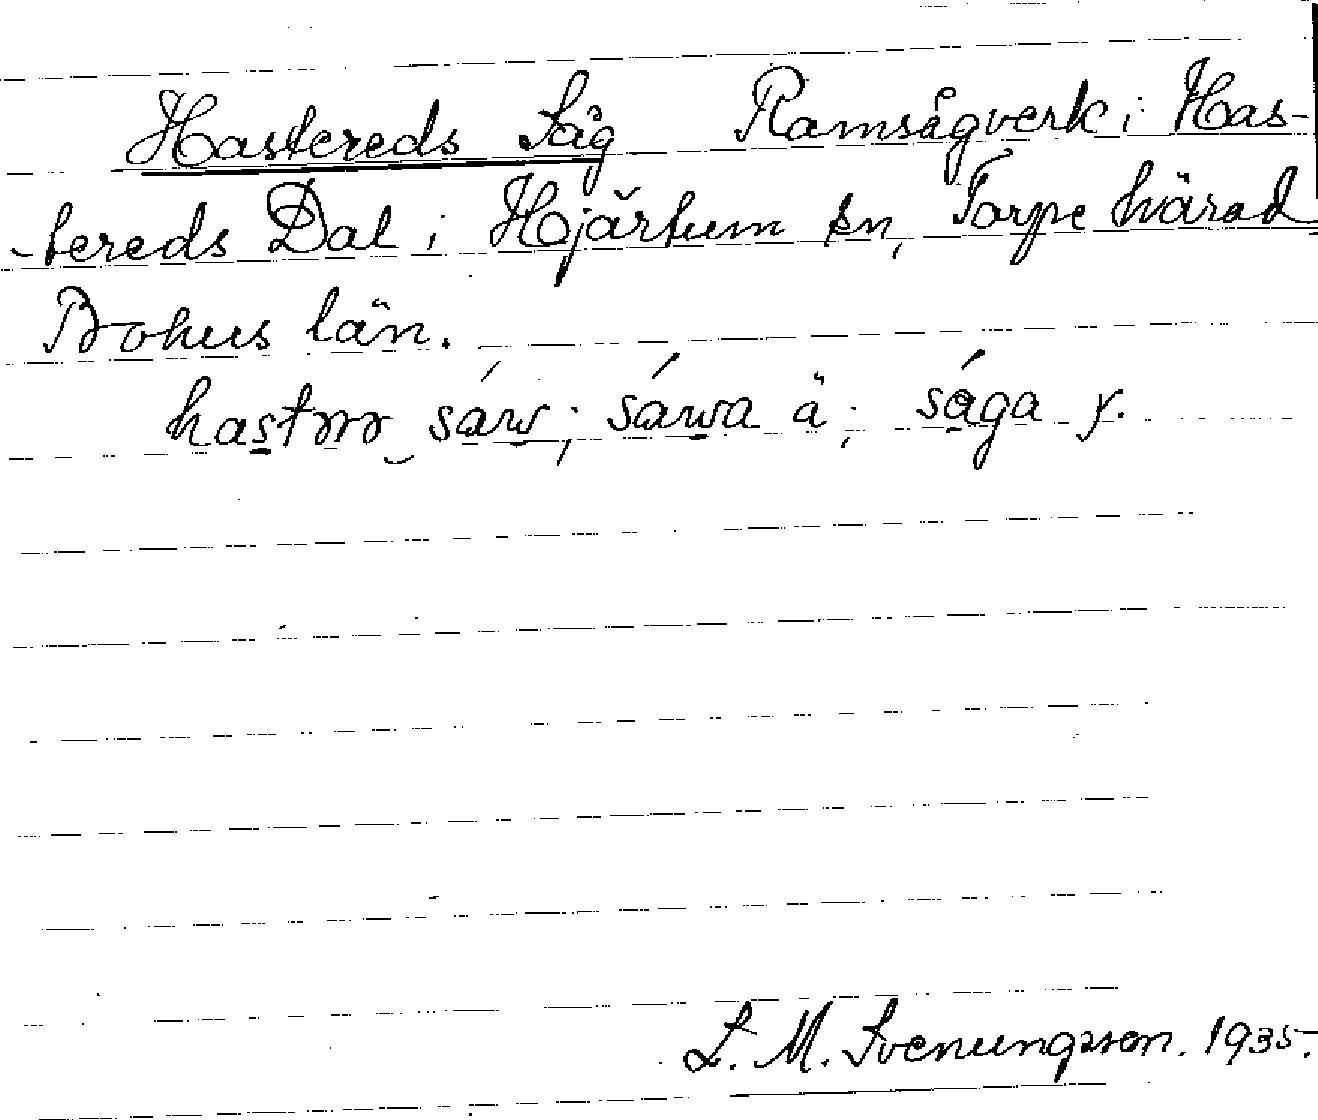 Hastereds Såg Ramsågverk i Has-
-tereds Dal i Hjärtum sn, Torpe härad
Bohus län.
sáw; sáwa ä; sága y.
L. M. Svenungsson. 1935.